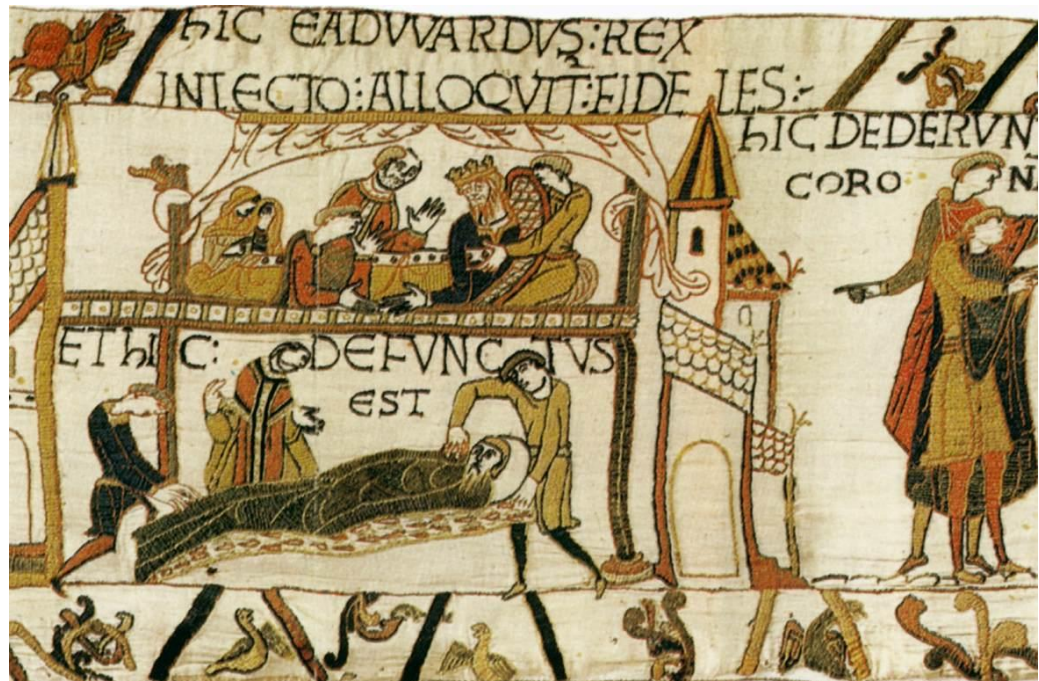 hIC EADVVARDVS:REX
INLECTO:ALLOQVIT:FIDE LES:-
hIC DEDERVNT
CORO NA
ET hIC: DEFVNC TVS
EST